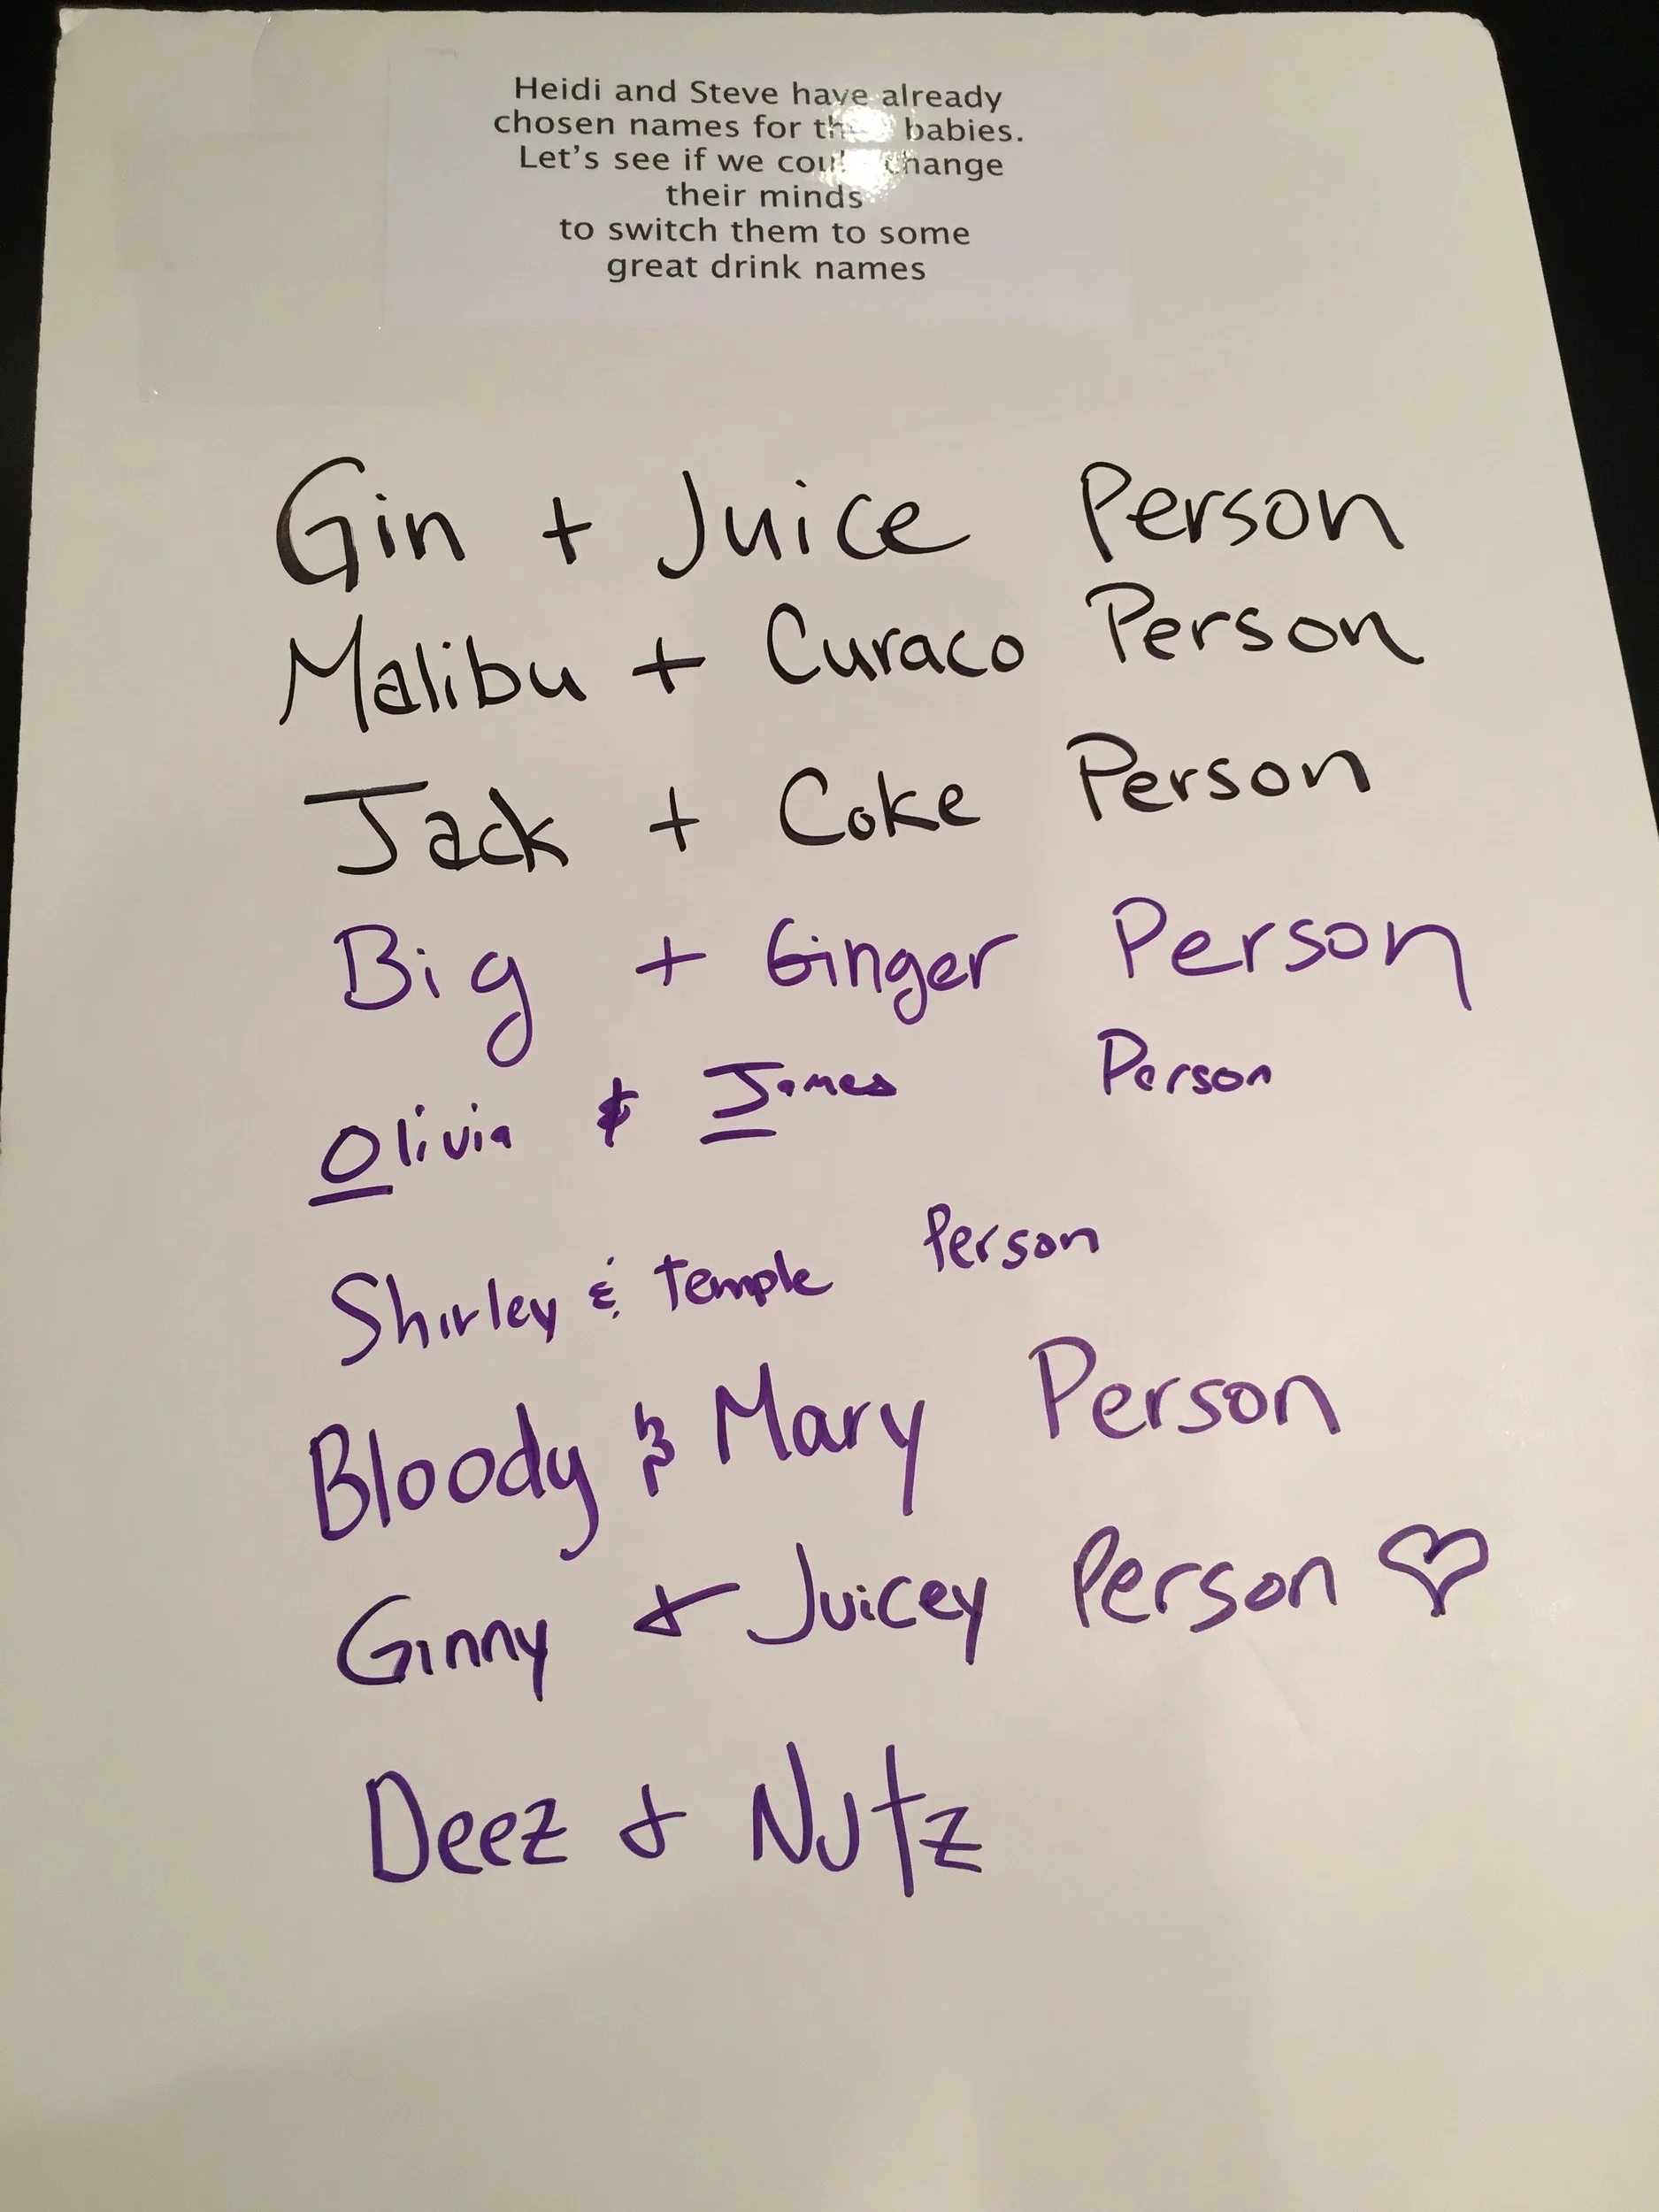 Heidi and Steve have already
chosen names for babies.
Let's see if we change
their minds
to switch them to some
great drink names
Gin + Juice Person
Malibu + Curaco Person
Jack + Coke Person
Big + Ginger Person
Olivia & James Person
Shirley & Temple Person
Bloody & Mary Person
Ginny + Juicey Person ♡
Deez + Nutz